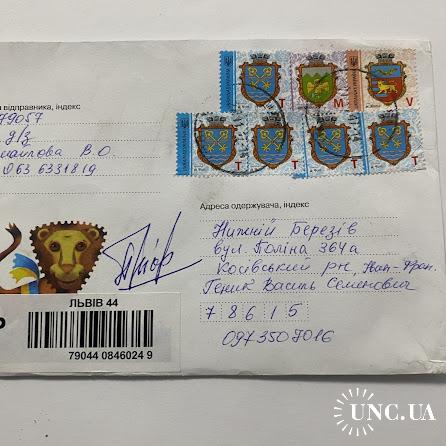 а відправника, індекс
79057
д/з
В.О.
063 6331819
Т
М
V
Т
Т
Т
Т
Адреса одержувача, індекс
Нижній Березів
вул. Поліна 364а
Косівський рн, Іван-Фран.
Геник Василь Семенович
78615
0973507016
ЛЬВІВ 44
P
79044 0846024 9
UNC.UA